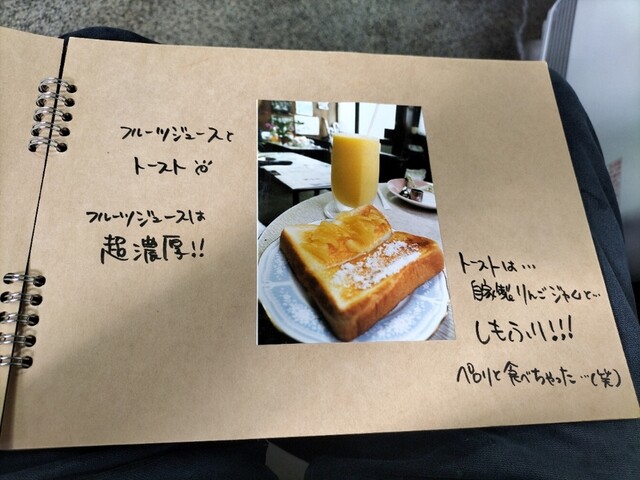 フルーツジュースと
トースト
フルーツジュースは
超濃厚!!
トーストは…
自家製りんごジャムと…
しもふり!!!
ペロリと食べちゃった…(笑)